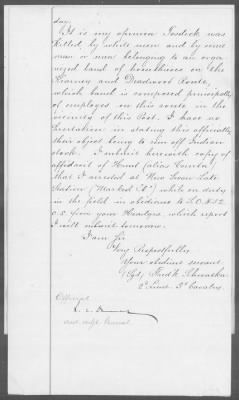 day.
It is my opinion Tosdick was
killed, by white men and by some
man or men belonging to an orga
nized band of horsethieves on the
Pierney and Deadwood Route,
which band is composed principally
of employes in this route in the
vicinity of this Post. I have no
hesitation in stating this officially
their object being to run off Indian
stock. I submit herewith copy of
affidavit of Hunt (alias Curtin)
that I arrested at New Swan Lake
Station (Marked "A") while on duty
in the field in obedience to S.O. No 52
C.S. from your Headqrs. which report
I will submit tomorrow.
I am Sir
Very Respectfully
Your obedient servant
(Sgd) Fred'k Schwatka
2d Lieut. 3d Cavalry
Official